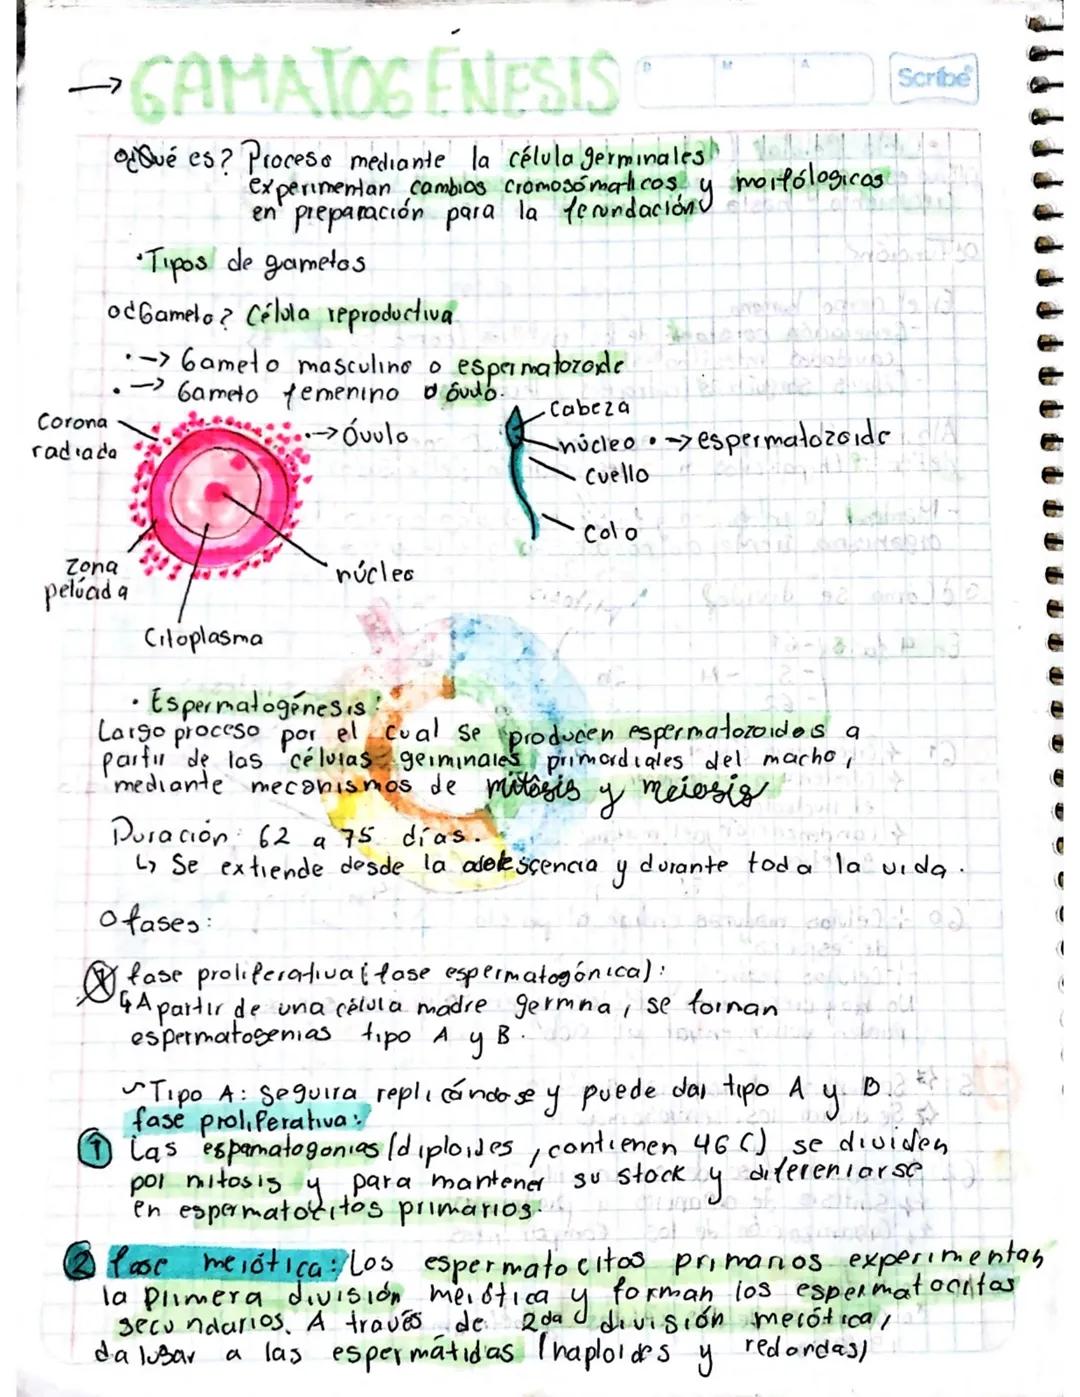 → GAMATOGENESIS
D M A
Scribe
o¿Qué es? Proceso mediante la célula germinales
experimentan cambios cromosómaticos y morfólogicos
en preparación para la fecundación
·Tipos de gametos
o¿Gameto? Célula reproductiva
·→ Gameto masculino o espermatozoide
·→ Gameto femenino o óvulo.
Corona
radiada
·→ Óvulo
Cabeza
núcleo ·→ espermatozoide
Cuello
Cola
Zona
pelúcida
núcleo
Citoplasma
· Espermatogénesis:
Largo proceso por el cual se producen espermatozoides a
partir de las células germinales primordiales del macho,
mediante mecanismos de mitosis y meiosis
Duración: 62 a 75 días.
↳ Se extiende desde la adolescencia y durante toda la vida.
O fases:
1 fase proliferativa (fase espermatogónica):
↳ A partir de una célula madre germna, se forman
espermatogenias tipo A y B.
Tipo A: Seguira replicándose y puede dar tipo A y B.
fase proliferativa:
1 Las espematogonias (diploides, contienen 46 C) se dividen
por mitosis y para mantener su stock y difereniarse
en espermatocitos primarios.
2 fase meiótica: Los espermatocitos primarios experimentan
la primera división meiótica y forman los espermatocitos
secundarios. A través de 2da división meiótica,
da lugar a las espermátidas (haploides y redondas)